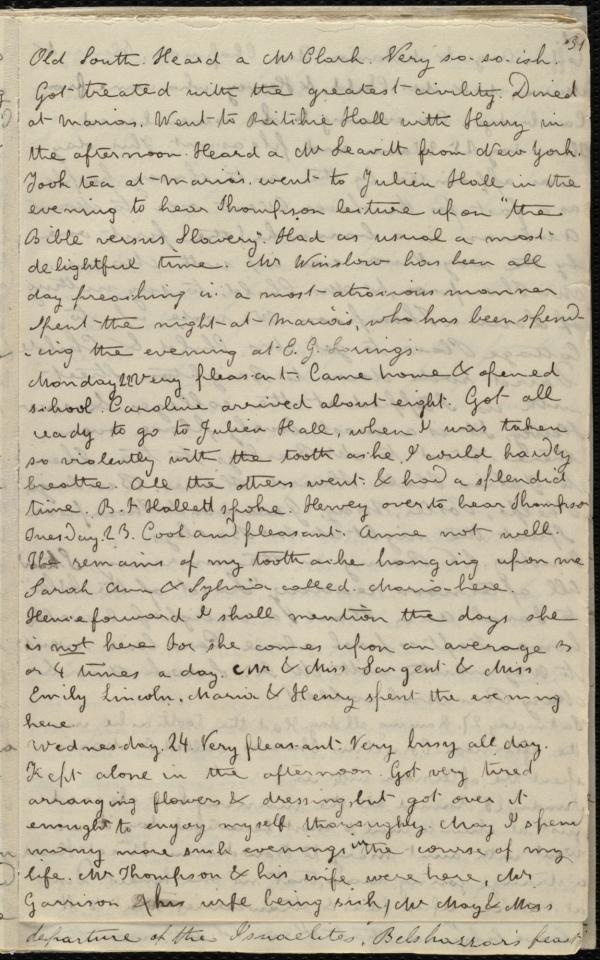 31
Old South. Heard a Mr Clark. Very so-so-ish.
Got treated with the greatest civility. Dined
at Marias. Went to Ritchie Hall with Henry in
the afternoon. Heard a Mr Leavitt from New York.
Took tea at Maria's. went to Julien Hall in the
evening to hear Thompson lecture upon "the
Bible versus Slavery". Had as usual a most
delightful time. Mr Winslow has been all
day preaching in a most atrocious manner
Spent the night at Maria's, who has been spend-
-ing the evening at E. G. Lorings.
Monday 22 Very pleasant. Came home & opened
school. Caroline arrived about eight. Got all
ready to go to Julien Hall, when I was taken
so violently with the tooth ache I could hardly
breathe. All the others went & had a splendid
time. B. F Hallett spoke. Hervey over to hear Thompson
Tuesday. 23. Cool and pleasant. Anne not well.
The remains of my tooth ache hanging upon me
Sarah Ann & Sylvia called. Maria here.
Henceforward I shall mention the days she
is not here for she comes upon an average 3
or 4 times a day. Mr & Miss Sargent & Miss
Emily Lincoln, Maria & Henry spent the evening
here
Wednesday. 24. Very pleasant. Very busy all day.
Kept alone in the afternoon. Got very tired
arranging flowers & dressing, but got over it
enough to enjoy myself thoroughly. May I spend
many more such evenings in the course of my
life. Mr Thompson & his wife were here, Mr.
Garrison (his wife being sick) Mr May & Miss
departure of the Israelites, Belshazzar's feast